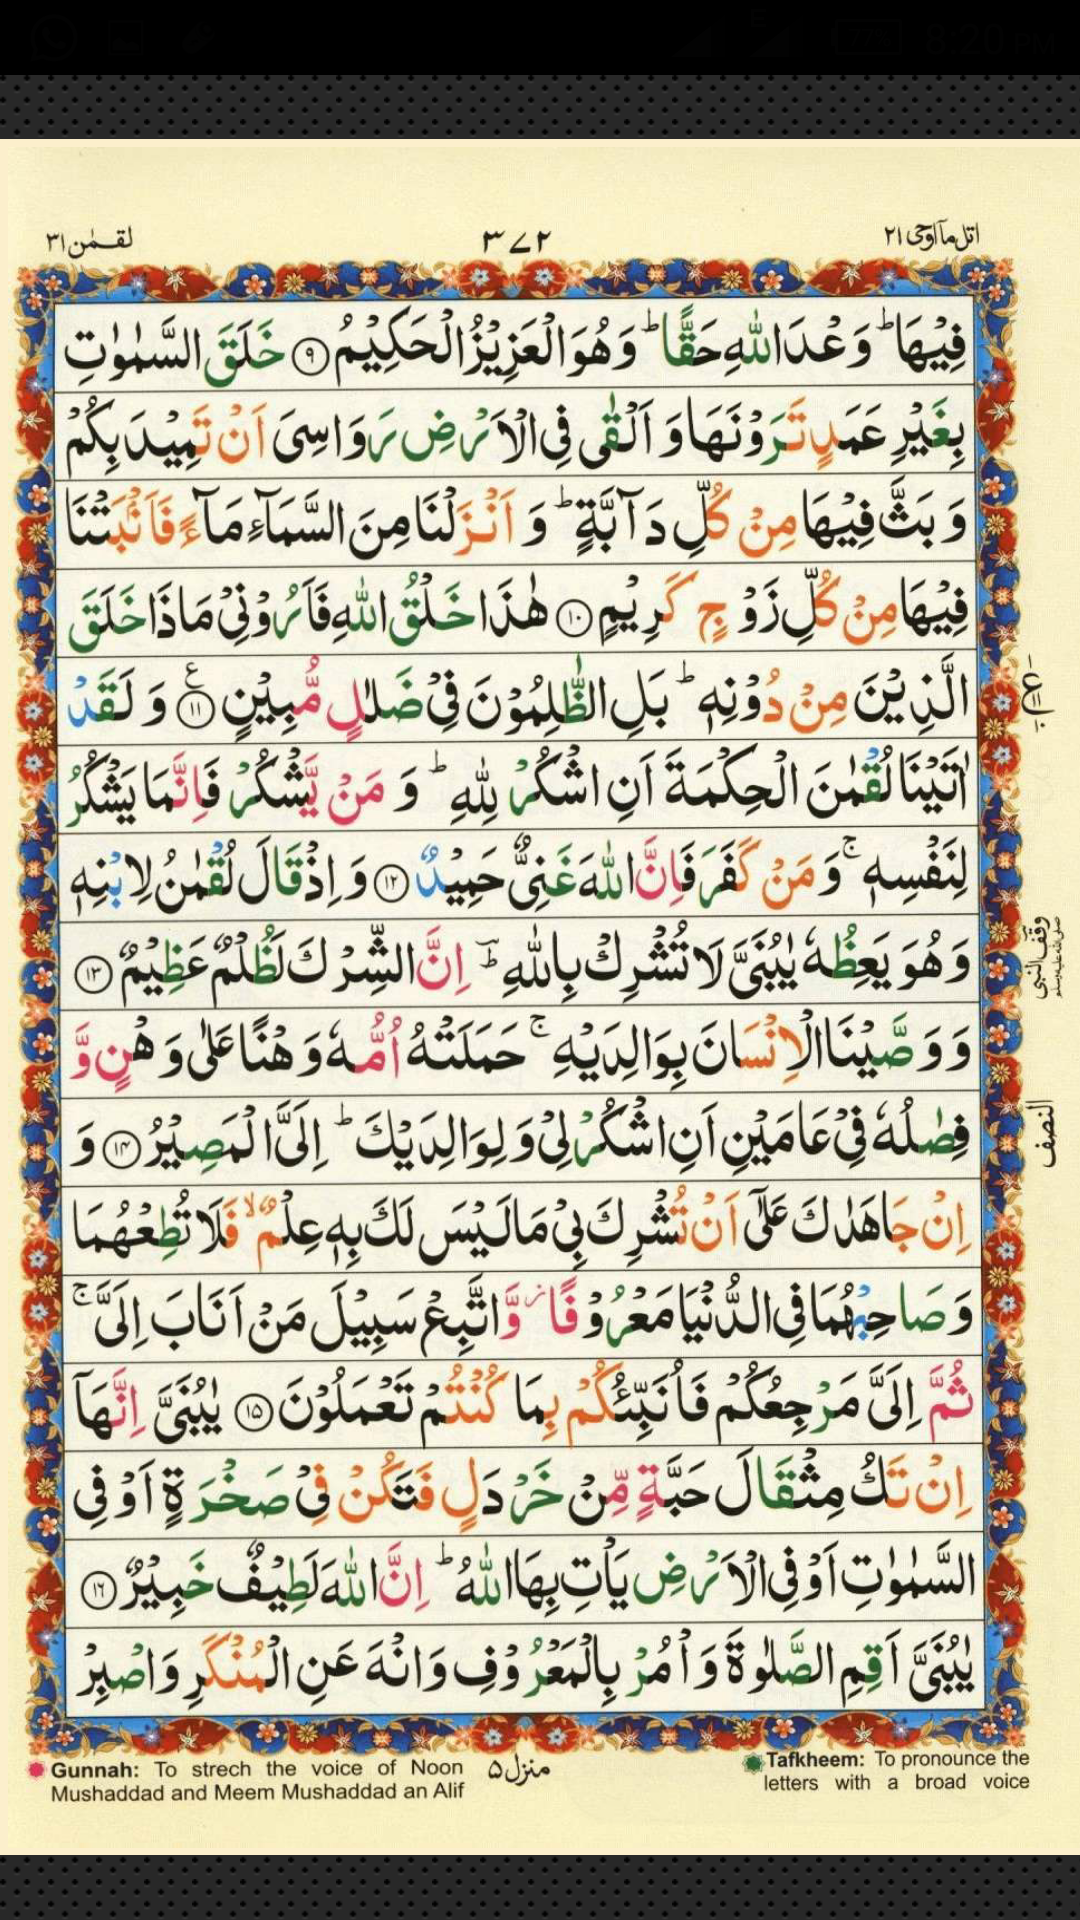 8:20 PM
اتل مآ اوحی ۲۱
۳۷۲
لقمٰن ۳۱
فِيْهَا ؕ وَعْدَ اللّٰهِ حَقًّا ؕ وَهُوَ الْعَزِيْزُ الْحَكِيْمُ ۹ خَلَقَ السَّمٰوٰتِ
بِغَيْرِ عَمَدٍ تَرَوْنَهَا وَ اَلْقٰى فِى الْاَرْضِ رَوَاسِىَ اَنْ تَمِيْدَ بِكُمْ
وَ بَثَّ فِيْهَا مِنْ كُلِّ دَآبَّةٍ ؕ وَ اَنْزَلْنَا مِنَ السَّمَآءِ مَآءً فَاَنْۢبَتْنَا
فِيْهَا مِنْ كُلِّ زَوْجٍ كَرِيْمٍ ۱۰ هٰذَا خَلْقُ اللّٰهِ فَاَرُوْنِىْ مَاذَا خَلَقَ
الَّذِيْنَ مِنْ دُوْنِهٖ ؕ بَلِ الظّٰلِمُوْنَ فِىْ ضَلٰلٍ مُّبِيْنٍ ۱۱ ع وَ لَقَدْ
اٰتَيْنَا لُقْمٰنَ الْحِكْمَةَ اَنِ اشْكُرْ لِلّٰهِ ؕ وَ مَنْ يَّشْكُرْ فَاِنَّمَا يَشْكُرُ
لِنَفْسِهٖ ۚ وَ مَنْ كَفَرَ فَاِنَّ اللّٰهَ غَنِىٌّ حَمِيْدٌ ۱۲ وَ اِذْ قَالَ لُقْمٰنُ لِابْنِهٖ
وَهُوَ يَعِظُهٗ يٰبُنَىَّ لَا تُشْرِكْ بِاللّٰهِ ؕ اِنَّ الشِّرْكَ لَظُلْمٌ عَظِيْمٌ ۱۳
وَ وَصَّيْنَا الْاِنْسَانَ بِوَالِدَيْهِ ۚ حَمَلَتْهُ اُمُّهٗ وَهْنًا عَلٰى وَهْنٍ وَّ
فِصٰلُهٗ فِىْ عَامَيْنِ اَنِ اشْكُرْ لِىْ وَ لِوَالِدَيْكَ ؕ اِلَىَّ الْمَصِيْرُ ۱۴ وَ
اِنْ جَاهَدٰكَ عَلٰٓى اَنْ تُشْرِكَ بِىْ مَا لَيْسَ لَكَ بِهٖ عِلْمٌ ۙ فَلَا تُطِعْهُمَا
وَ صَاحِبْهُمَا فِى الدُّنْيَا مَعْرُوْفًا ز وَّ اتَّبِعْ سَبِيْلَ مَنْ اَنَابَ اِلَىَّ ۚ
ثُمَّ اِلَىَّ مَرْجِعُكُمْ فَاُنَبِّئُكُمْ بِمَا كُنْتُمْ تَعْمَلُوْنَ ۱۵ يٰبُنَىَّ اِنَّهَآ
اِنْ تَكُ مِثْقَالَ حَبَّةٍ مِّنْ خَرْدَلٍ فَتَكُنْ فِىْ صَخْرَةٍ اَوْ فِى
السَّمٰوٰتِ اَوْ فِى الْاَرْضِ يَاْتِ بِهَا اللّٰهُ ؕ اِنَّ اللّٰهَ لَطِيْفٌ خَبِيْرٌ ۱۶
يٰبُنَىَّ اَقِمِ الصَّلٰوةَ وَ اْمُرْ بِالْمَعْرُوْفِ وَ انْهَ عَنِ الْمُنْكَرِ وَ اصْبِرْ
وقف النبی
النصف
منزل ۵
Gunnah: To strech the voice of Noon
Mushaddad and Meem Mushaddad an Alif
Tafkheem: To pronounce the
letters with a broad voice